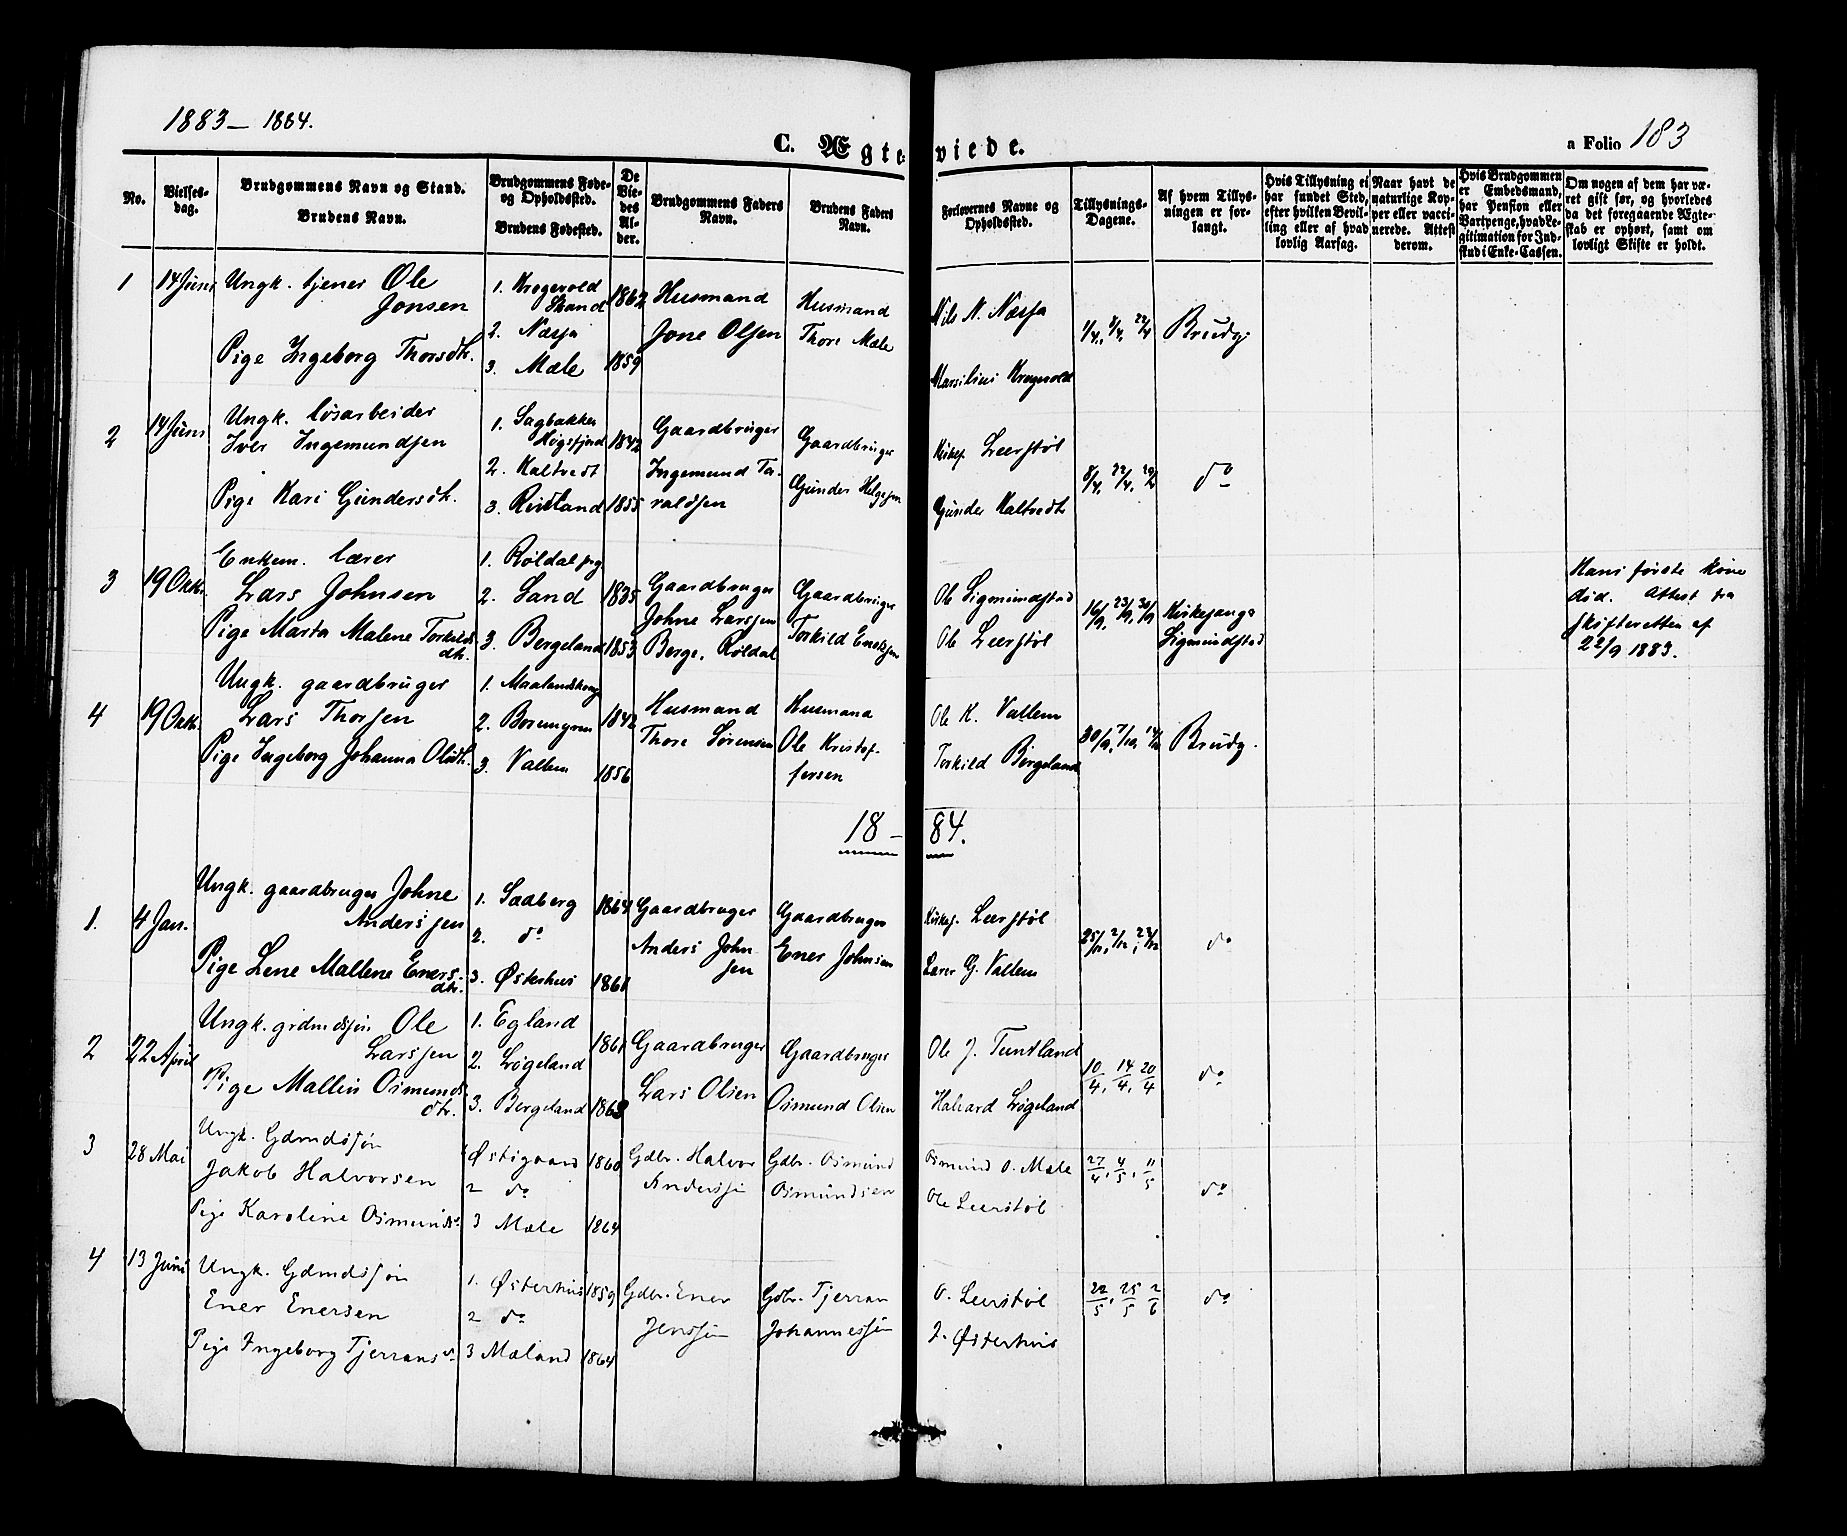 1883 — 1884.
C. Ægteviede.
a Folio 183
No.
Vielses-
dag.
Brudgommens Navn og Stand.
Brudens Navn.
Brudgommens Føde-
og Opholdssted.
Brudens Fødested.
De
Vie-
des
Al-
der.
Brudgommens Faders
Navn.
Brudens Faders
Navn.
Forlovernes Navne og
Opholdssted.
Tillysnings-
Dagene.
Af hvem Tillys-
ningen er for-
langt.
Hvis Tillysning ei
har fundet Sted,
efter hvilken Bevil-
ling eller af hvad
lovlig Aarsag.
Naar havt de
naturlige Kop-
per eller vacci-
nerede. Attest
derom.
Hvis Brudgommen
er Embedsmand,
har Pension eller
Vartpenge, hvad Le-
gitimation for Ind-
skud i Enke-Cassen.
Om nogen af dem har væ-
ret gift før, og hvorledes
da det foregaaende Ægte-
skab er ophørt, samt om
lovligt Skifte er holdt.
1 14 Juni Ungk. tjener Ole
Jonsen
Pige Ingeborg Thorsdt.
1. Kragevold
Strand
2. Næsja
3. Mæle
1862
1859
Husmand
Jone Olsen
Husmand
Thore Mæle
Nils N. Næsja
Marsilius Kragevold
1/4, 8/4, 22/4 Brudg.
2 14 Juni Ungk. løsarbeider
Iver Ingemundsen
Pige Kari Gundersdt.
1. Sagbakken
Høgsfjord
2. Kaltvedt
3. Rustland
1842
1855
Gaardbruger
Ingemund To-
raldsen
Gaardbruger
Gunder Helgesen
Kirkes. Leerstøl
Gunder Kaltvedt
8/4, 22/4, 29/4 do
3 19 Oktr. Enkem. lærer
Lars Johnsen
Pige Marta Malene Torkilds-
dt.
1. Røldal prg
2. Sand
3. Bergeland
1835
1853
Gaardbruger
Johne Larssen
Berge, Røldal
Gaardbruger
Torkild Enoksen
Ole Sigmundstad
Ole Leerstøl
16/9, 23/9, 30/9 Kirkesanger
Sigmundstad
Hans første kone
død. Attest fra
skifteretten af
22/9 1883.
4 19 Oktr. Ungk. gaardbruger
Lars Thorsen
Pige Ingeborg Johanna Olsdt.
1. Maalandskoug
2.
3. Vallem
1842
1856
Husmand
Thore Sørensen
Husmand
Ole Kristof-
fersen
Ole K. Vallem
Torkild Bergeland
30/9, 7/10, 14/10 Brudg.
18 — 84.
1. 4 Jan. Ungk. gaardbruger Johne
Anderssen
Pige Lene Mallene Eners-
dtr.
1. Sadberg
2. do
3. Østerhus
1864
1861
Gaardbruger
Anders John-
sen
Gaardbruger
Ener Johnsen
Kirkes. Leerstøl
Lærer G. Vallem
25/11, 2/12, 23/12 do
2 22 April Ungk. grdmdssøn Ole
Larssen
Pige Mallin Osmunds-
dtr.
1. Egland
2. Løgeland
3. Bergeland
1861
1863
Gaardbruger
Lars Olsen
Gaardbruger
Osmund Olsen
Ole J. Tuntland
Halvard Løgeland
10/4, 14/4, 20/4 do
3 28 Mai Ungk. Gdmdssøn
Jakob Halvorsen
Pige Karoline Osmundsd.
1 Østigaard
2 do
3 Mæle
1860
1864
Gdbr. Halvor
Anderssøn
Gdbr. Osmund
Osmundsen
Osmund O. Mæle
Ole Leerstøl
27/4, 4/5, 11/5 do
4 13 Juni Ungk. Gdmdssøn
Ener Enersen
Pige Ingeborg Tjerransd.
1. Østerhus
2 do
3 Mæland
1859
1864
Gdbr. Ener
Jenssøn
Gdbr. Tjerran
Johannessøn
O. Leerstøl
J. Østerhus
22/5, 25/5, 2/6 do